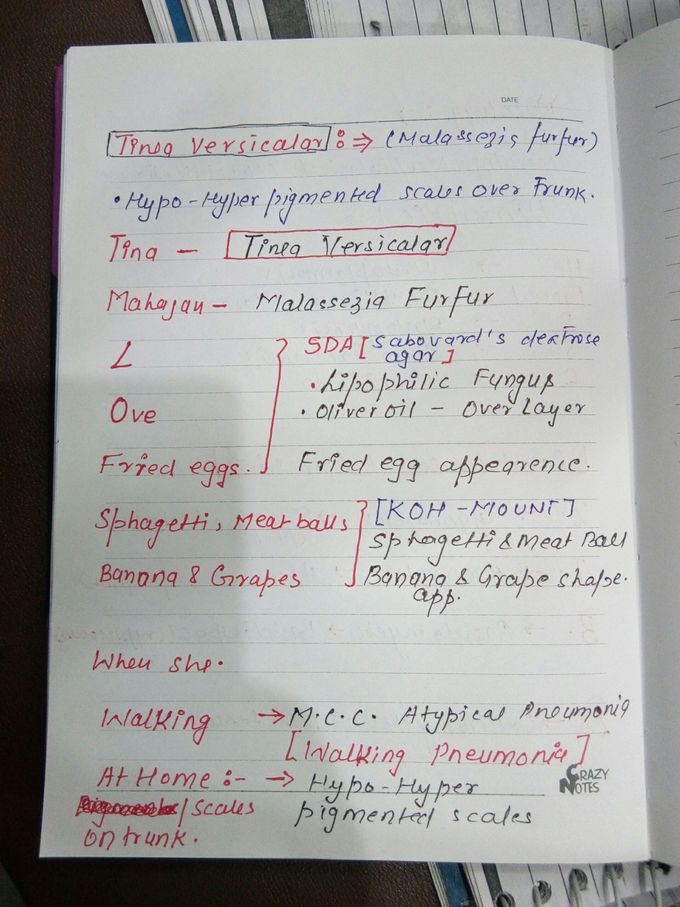 DATE
Tinea Versicalar :⇒ (Malassezia furfur)
• Hypo-Hyper pigmented scales over Trunk.
Tina — Tinea Versicalar
Mahajan — Malassezia Furfur
L
SDA [Sabovard's dextrose agar]
• Lipophilic Fungus
Ove
• Oliver oil — Over Layer
Fried eggs. Fried egg appearence.
[KOH-MOUNT]
Sphagetti, Meat balls
Sphagetti & Meat Ball
Banana & Grapes
Banana & Grape shape. app.
When she.
Walking → M.C.C. Atypical Pneumonia
[Walking Pneumonia]
At Home :- → Hypo-Hyper
/Scales pigmented scales
on trunk.
CRAZY NOTES